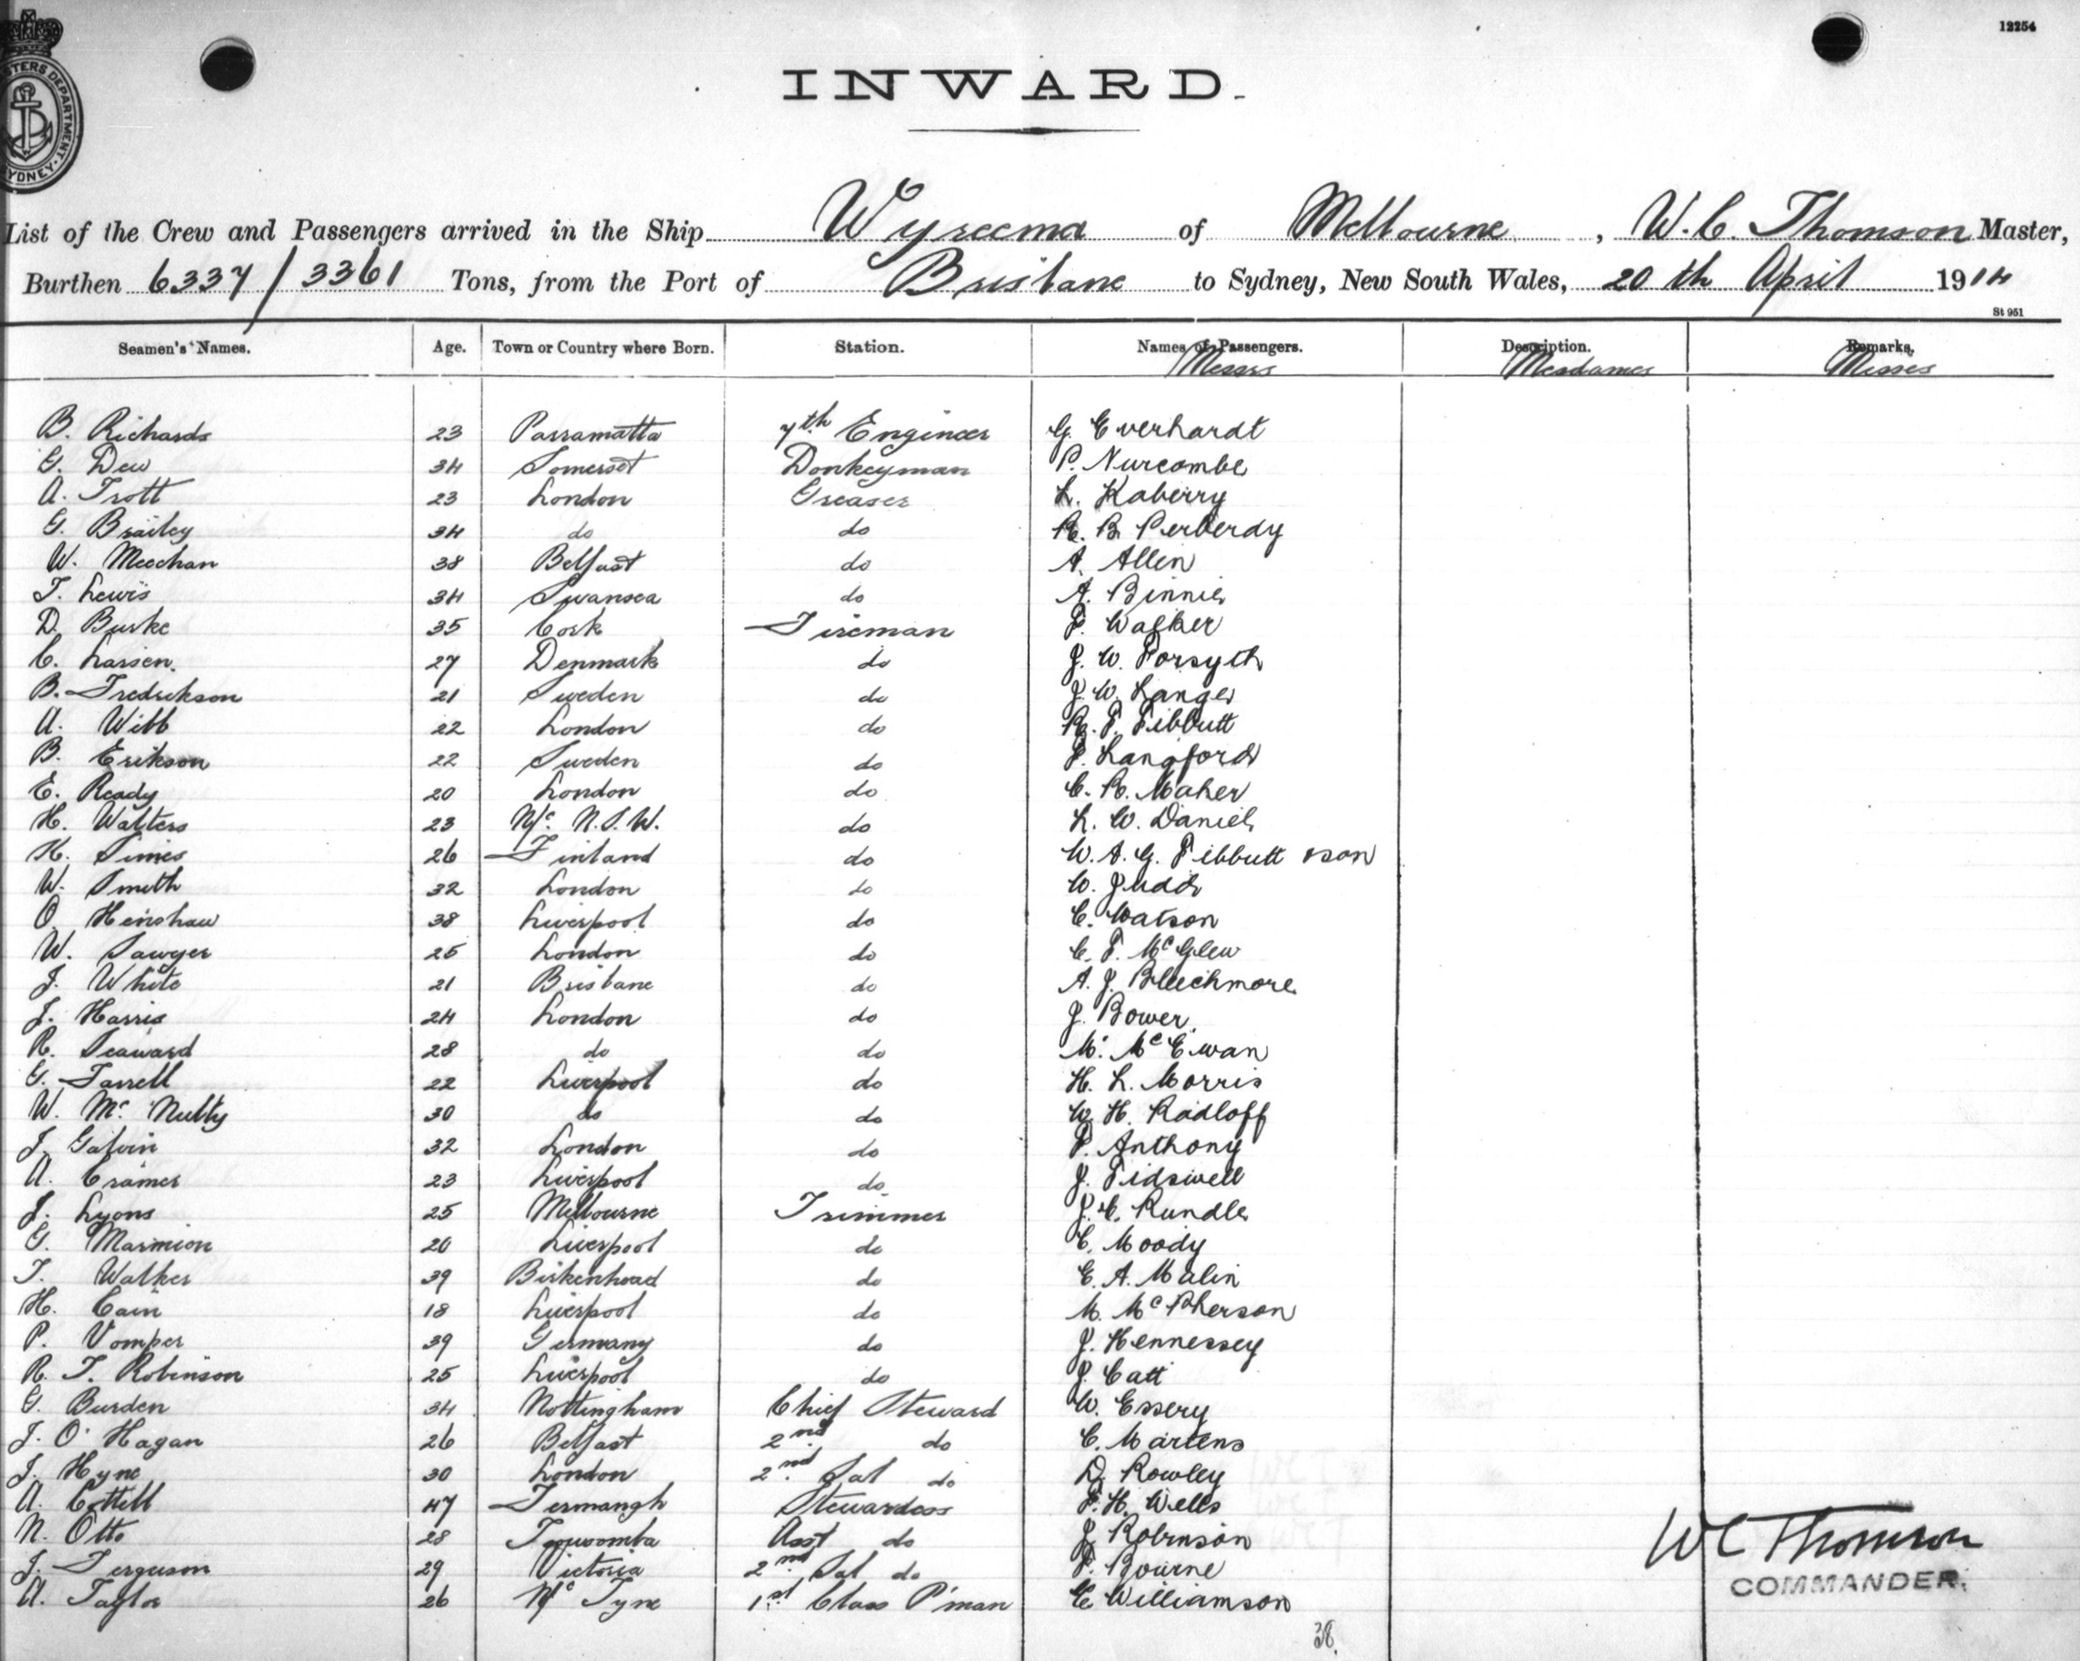 12254
INWARD.
List of the Crew and Passengers arrived in the Ship Wyreema of Melbourne, W. C. Thomson Master,
Burthen 6337/3361 Tons, from the Port of Brisbane to Sydney, New South Wales, 20th April 1914
St 951
Seamen's Names. Age. Town or Country where Born. Station. Names of Passengers. Description. Remarks.
Messrs Mesdames Misses
B. Richards 23 Parramatta 7th Engineer G. Everhardt
G. Dew 34 Somerset Donkeyman P. Nurcombe
A. Trott 23 London Greaser L. Kaberry
G. Brailey 34 do do R. B. Perberdy
W. Meechan 38 Belfast do A. Allen
T. Lewis 34 Swansea do A. Binnie
D. Burke 35 Cork Fireman F. Walker
C. Larsen. 27 Denmark do J. W. Forsyth
B. Fredrikson 21 Sweden do J. W. Langer
A. Webb 22 London do R. F. Tibbutt
B. Erikson 22 Sweden do F. Langford
E. Ready 20 London do C. R. Maher
H. Walters 23 N/c. N.S.W. do L. W. Daniel
K. Simes 26 Finland do W. A. G. Tibbutt & son
W. Smith 32 London do W. Judd
O. Henshaw 38 Liverpool do C. Watson
W. Sawyer 25 London do C. F. McGlew
J. White 21 Brisbane do A. J. Bleechmore
J. Harris 24 London do J. Bower.
R. Seaward 28 do do M. McEwan
G. Farrell 22 Liverpool do H. L. Morris
W. Mc Nulty 30 do do W. H. Radloff
J. Galvin 32 London do P. Anthony
A. Cramer 23 Liverpool do J. Tidswell
J. Lyons 25 Melbourne Trimmer J. C. Rundle
G. Marmion 20 Liverpool do C. Moody
T. Walker 39 Birkenhead do E. A. Malin
H. Cain 18 Liverpool do M. McPherson
P. Vomper 39 Germany do J. Hennessey
R. T. Robinson 25 Liverpool do J. Catt
G. Burden 34 Nottingham Chief Steward W. Essery
J. O'Hagan 26 Belfast 2nd do C. Martens
J. Hyne 30 London 2nd Sal do D. Rowley
A. Cottell 47 Fermangh Stewardess F. H. Wells
N. Otto 28 Toowoomba Asst do J. Robinson
J. Ferguson 29 Victoria 2nd Sal do F. Bourne
A. Taylor 26 N/c Tyne 1st Class P'man C. Williamson
38.
WC Thomson
COMMANDER.